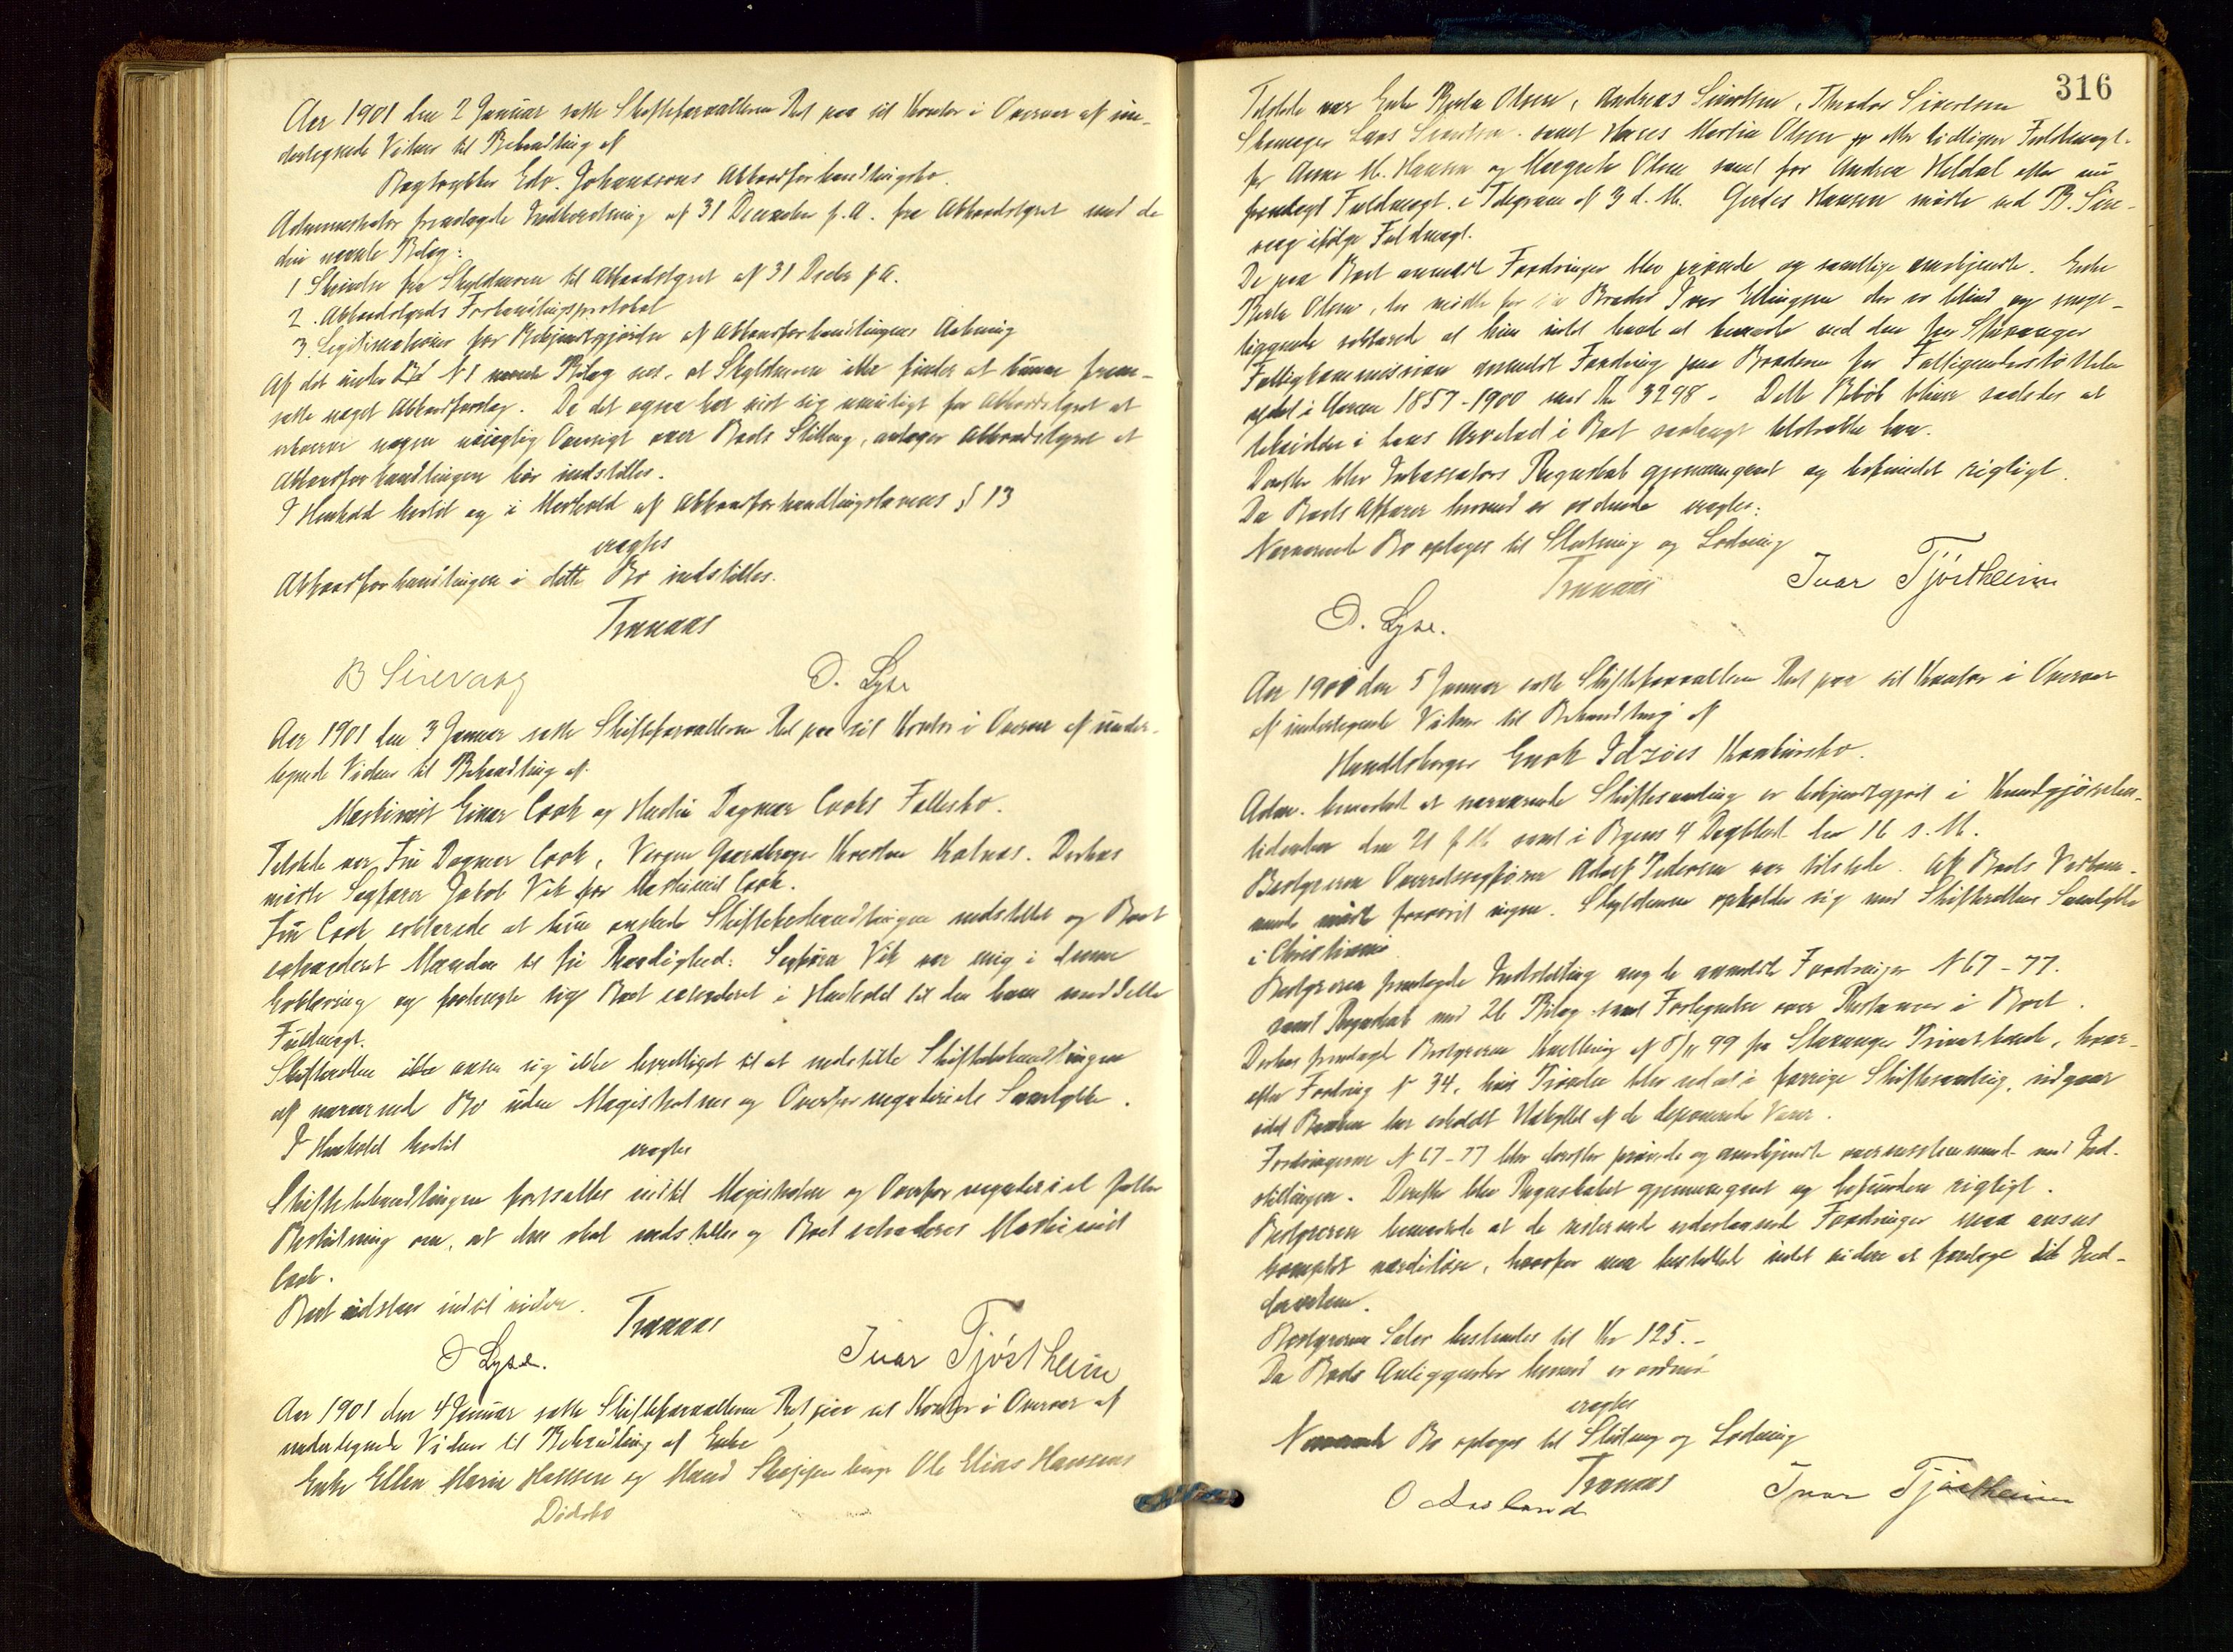 Aar 1901 den 2 Januar satte Skifteforvalteren Ret paa sit Kontor i Overvær af un-
dertegnede Vidner til Behandling af
Bogtrykker Edv. Johannesens Akkordforhandlingsbo.
Administrator fremlagde Indberetning af 31 December f. A. fra Akkordstyret med de
deri nævnte Bilag:
1 Skrivelse fra Skyldneren til Akkordstyret af 31 Decbr f. A.
2. Akkordstyrets Forhandlingsprotokol
3. Legitimationer for Bekjendtgjørelse af Akkordforhandlingens Aabning
Af det under N 1 nævnte Bilag sees, at Skyldneren ikke finder at kunne frem-
sætte noget Akkordforslag. Da det ogsaa har vist sig umuligt for Akkordstyret at
erhverve nogen nøiagtig Oversigt over Boets Stilling, antager Akkordstyret at
Akkordforhandlingen bør indstilles.
I Henhold hertil og i Medhold af Akkordforhandlingslovens § 13
eragtes
Akkordforhandlingen i dette Bo indstilles.
Tranaas
B Sirevaag O. Lyse
Aar 1901 den 3 Januar satte Skifteforvalteren Ret paa sit Kontor i Overvær af under-
tegnede Vidner til Behandling af
Maskinist Einar Cook og Hustru Dagmar Cooks Fællesbo.
Tilstede var Fru Dagmar Cook, Værgen Gaardbruger Kalnæs. Derhos
mødte Sagfører Jakob Vik for Maskinist Cook.
Fru Cook erklærede at hun ønskede Skiftebehandlingen indstillet og Boet
extraderet Manden til fri Raadighed. Sagfører Vik var enig i denne
Erklæring og forlangte sig Boet extraderet i Henhold til den ham meddelte
Fuldmagt.
Skifteretten ikke anser sig ikke berettiget til at indstille Skiftebehandlingen
af nærværende Bo uden Magistratens og Overformynderiets Samtykke.
I Henhold hertil eragtes
Skiftebehandlingen fortsættes indtil Magistraten og Overformynderiet fatter
Beslutning om, at den skal indstilles og Boet extraderes Maskinist
Cook.
Boet udstaar indtil videre.
Tranaas
O Lyse. Ivar Tjøstheim
Aar 1901 den 4 Januar satte Skifteforvalteren Ret paa sit Kontor i Overvær af
undertegnede Vidner til Behandling af Enke
Enke Ellen Marie Hansen og Mand Ole Elias Hansens
Dødsbo
316
Tilstede var Enke Berta Olsen, Andreas Sivertsen, Theodor Sivertsen
Skomager Lars Sivertsen samt Hanes Martin Olsen efter tidligere Fuldmagt
for Anne M. Hansen og Margrete Olsen samt for Andrea Heldal efter nu
fremlagt Fuldmagt i Telegram af 3 d. M. Gerdes Hansen mødte ved B. Sire-
vaag ifølge Fuldmagt.
De paa Boet anmeldte Fordringer blev prøvede og samtlige anerkjendte. Enke
Berta Olsen, der mødte for sin Broder Iver Ellingsen der er blind og senge-
liggende erklærede at hun intet havde at bemærke ved den fra Stavanger
Fattigkommission anmeldte Fordring paa Broderen for Fattigunderstøttelse
ydet i Aarene 1857-1900 med Kr 3298 - Dette Beløb bliver saaledes at
tilsvare i hans Arvelod i Boet saalangt tilstrækker kan.
Derefter blev Inkassators Regnskab gjennemgaaet og befundet rigtigt.
Da Boets Affærer hermed er ordnede eragtes:
Nærværende Bo optages til Slutning og Lodning
Tranaas Ivar Tjøstheim
O. Lyse.
Aar 1901 den 5 Januar satte Skifteforvalteren Ret paa sit Kontor i Overvær
af undertegnede Vidner til Behandling af
Handelsborger Enok Idsøes Konkursbo.
Adm. bemærkede at nærværende Skiftesamling er bekjendtgjort i Kundgjørelses-
tidenden den 21 f. M. samt i Byens 4 Dagblade den 16 s. M.
Bestyreren Overretssagfører Adolf Pedersen var tilstede. Af Boets Vedkom-
mende mødte forøvrigt ingen. Skyldneren opholder sig med Skifterettens Samtykke
i Christiania
Bestyreren fremlagde Indstilling ang de anmeldte Fordringer N 67-77.
samt Regnskab med 26 Bilag samt Fortegnelse over Restancer i Boet.
Derhos fremlagde Bestyreren Kvittering af 8/11 99 fra Stavanger Privatbank, hvor-
efter Fordring N 34, hvis Prøvelse blev udsat i forrige Skiftesamling, udgaar
idet Banken har erholdt Udbytte af de deponerede Varer.
Fordringerne N 67-77 blev derefter prøvede og anerkjendte overensstemmende med Ind-
stillingen. Derefter blev Regnskabet gjennemgaaet og befundet rigtigt.
Bestyreren bemærkede at de resterende udestaaende Fordringer maa ansees
komplet værdiløse, hvorfor man besluttede intet videre at foretage til Ind-
drivelsen.
Bestyrerens Salær bestemtes til Kr 125.-
Da Boets Anliggender hermed er ordnet
eragtes
Nærværende Bo optages til Slutning og Lodning
Tranaas
O Aasland Ivar Tjøstheim